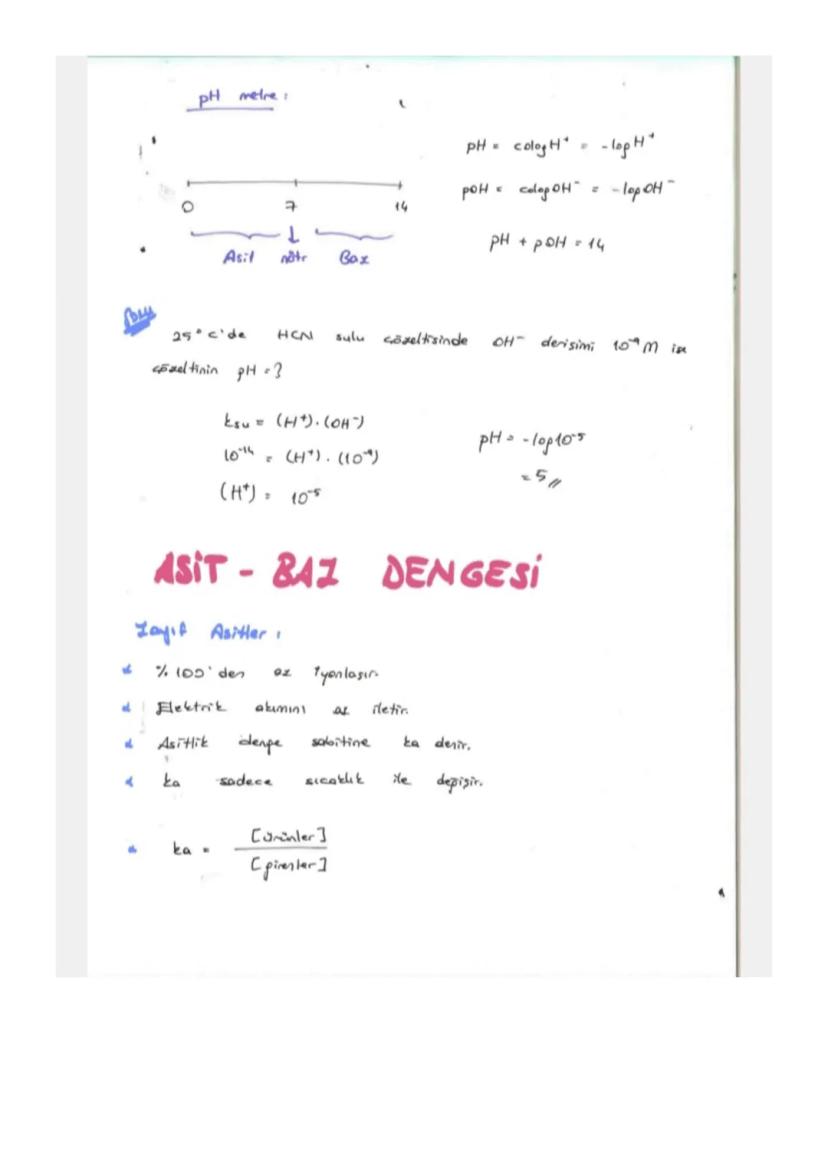 pH metre:
pH = cologH⁺ = -logH⁺
pOH = cologOH⁻ = -logOH⁻
pH + pOH = 14
0 7 14
Asit nötr Baz
25°C'de HCN sulu çözeltisinde OH⁻ derisimi 10⁻⁹ M ise
çözeltinin pH = ?
ksu = (H⁺).(OH⁻)
10⁻¹⁴ = (H⁺).(10⁻⁹)
(H⁺) = 10⁻⁵
pH = -log10⁻⁵
= 5//
ASİT - BAZ DENGESİ
Zayıf Asitler:
% 100'den az iyonlaşır.
Elektrik akımını az iletir.
Asitlik denge sabitine ka denir.
ka sadece sıcaklık ile değişir.
ka = [ürünler]
[girenler]